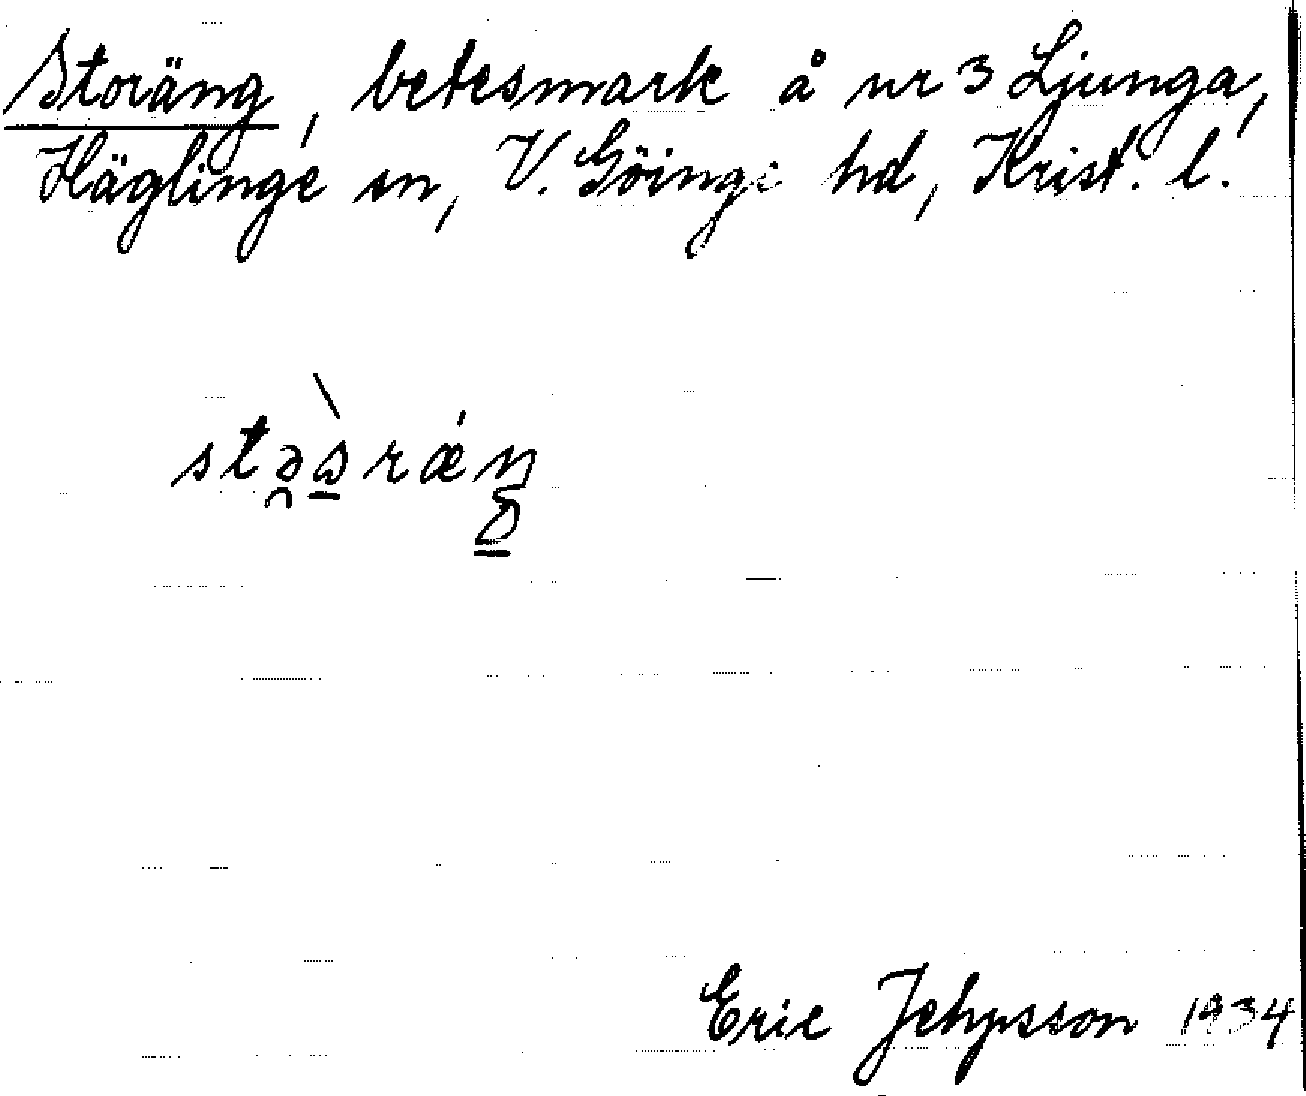 Storäng, betesmark å nr 3 Ljunga,
Häglinge sn, V. Göinge hd, Krist. l.
Eric Jehpsson 1934